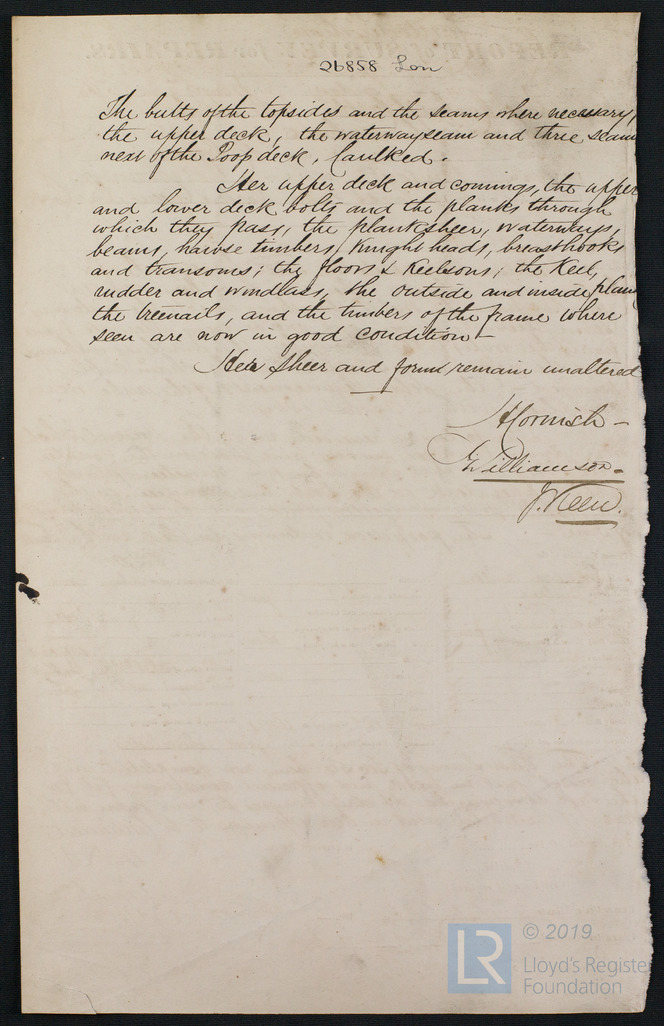 26858 Lon
The butts of the topsides and the seams where necessary,
the upper deck, the waterway seam and three seams
next of the Poop deck, Caulked.
Her upper deck and comings, the upper
and lower deck bolts and the planks through
which they pass, the planksheer, waterways,
beams, hawse timbers, Knight heads, breasthooks
and transoms; the floors & Keelsons; the Keel,
rudder and windlass, the outside and inside plank
the treenails, and the timbers of the frame where
seen are now in good condition—
Her Sheer and form remain unaltered
H Cornish –
Williamson
J. Keen.
© 2019
LR
Lloyd's Register
Foundation